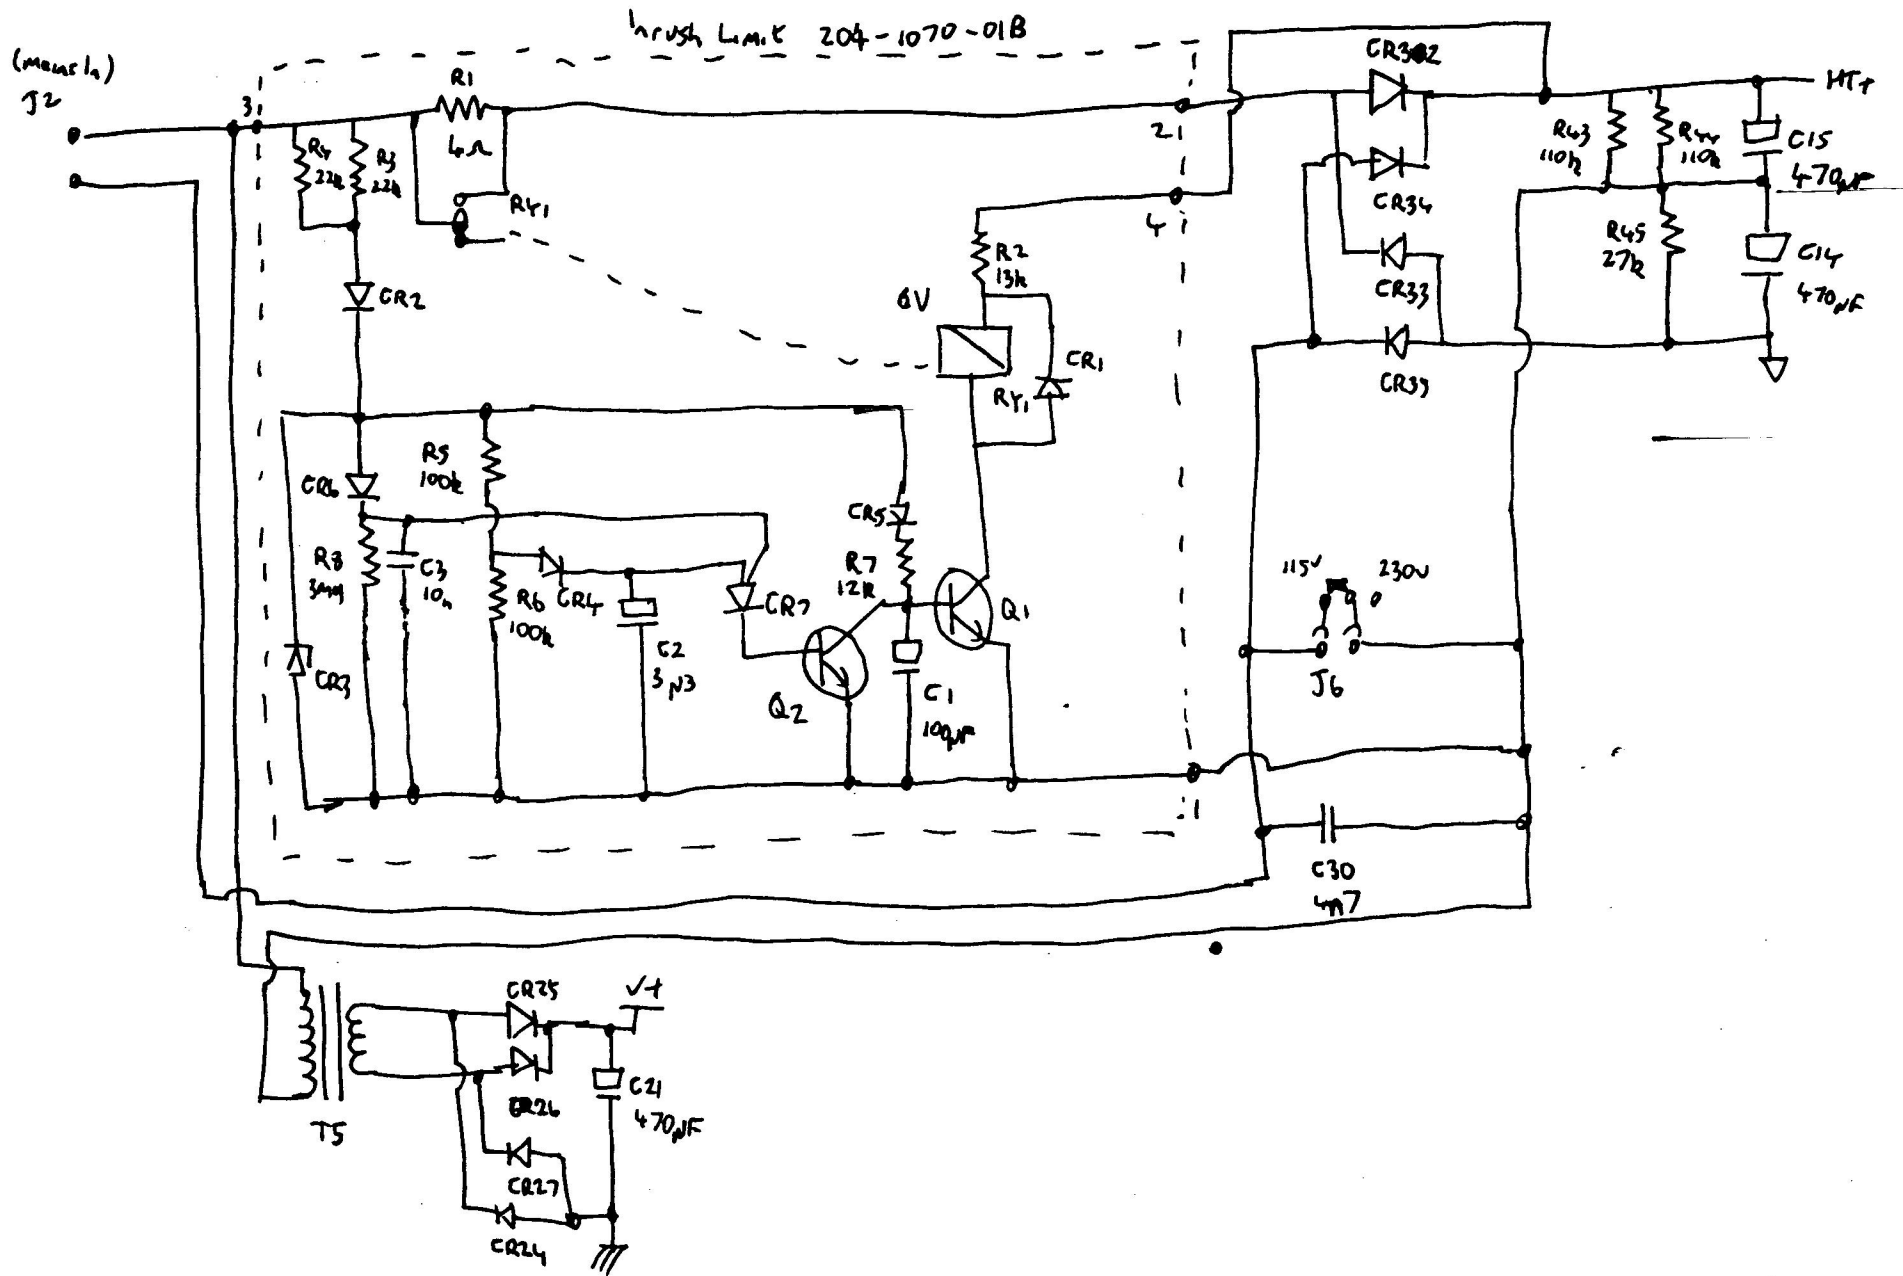 Inrush Limit 204-1070-01B
(Mains In)
J2
3
R1
4Ω
R4
22k
R3
22k
RY1
CR2
2
4
R2
13k
6V
RY1
CR1
CR32
CR34
CR33
CR35
HT+
R43
110k
R44
110k
C15
470µF
R45
27k
C14
470µF
CR6
R5
100k
R8
3M9
C3
10n
R6
100k
CR4
CR3
C2
3µ3
CR7
Q2
CR5
R7
12k
C1
100µF
Q1
115V
230V
J6
1
C30
4n7
T5
CR25
CR26
CR27
CR24
V+
C21
470µF